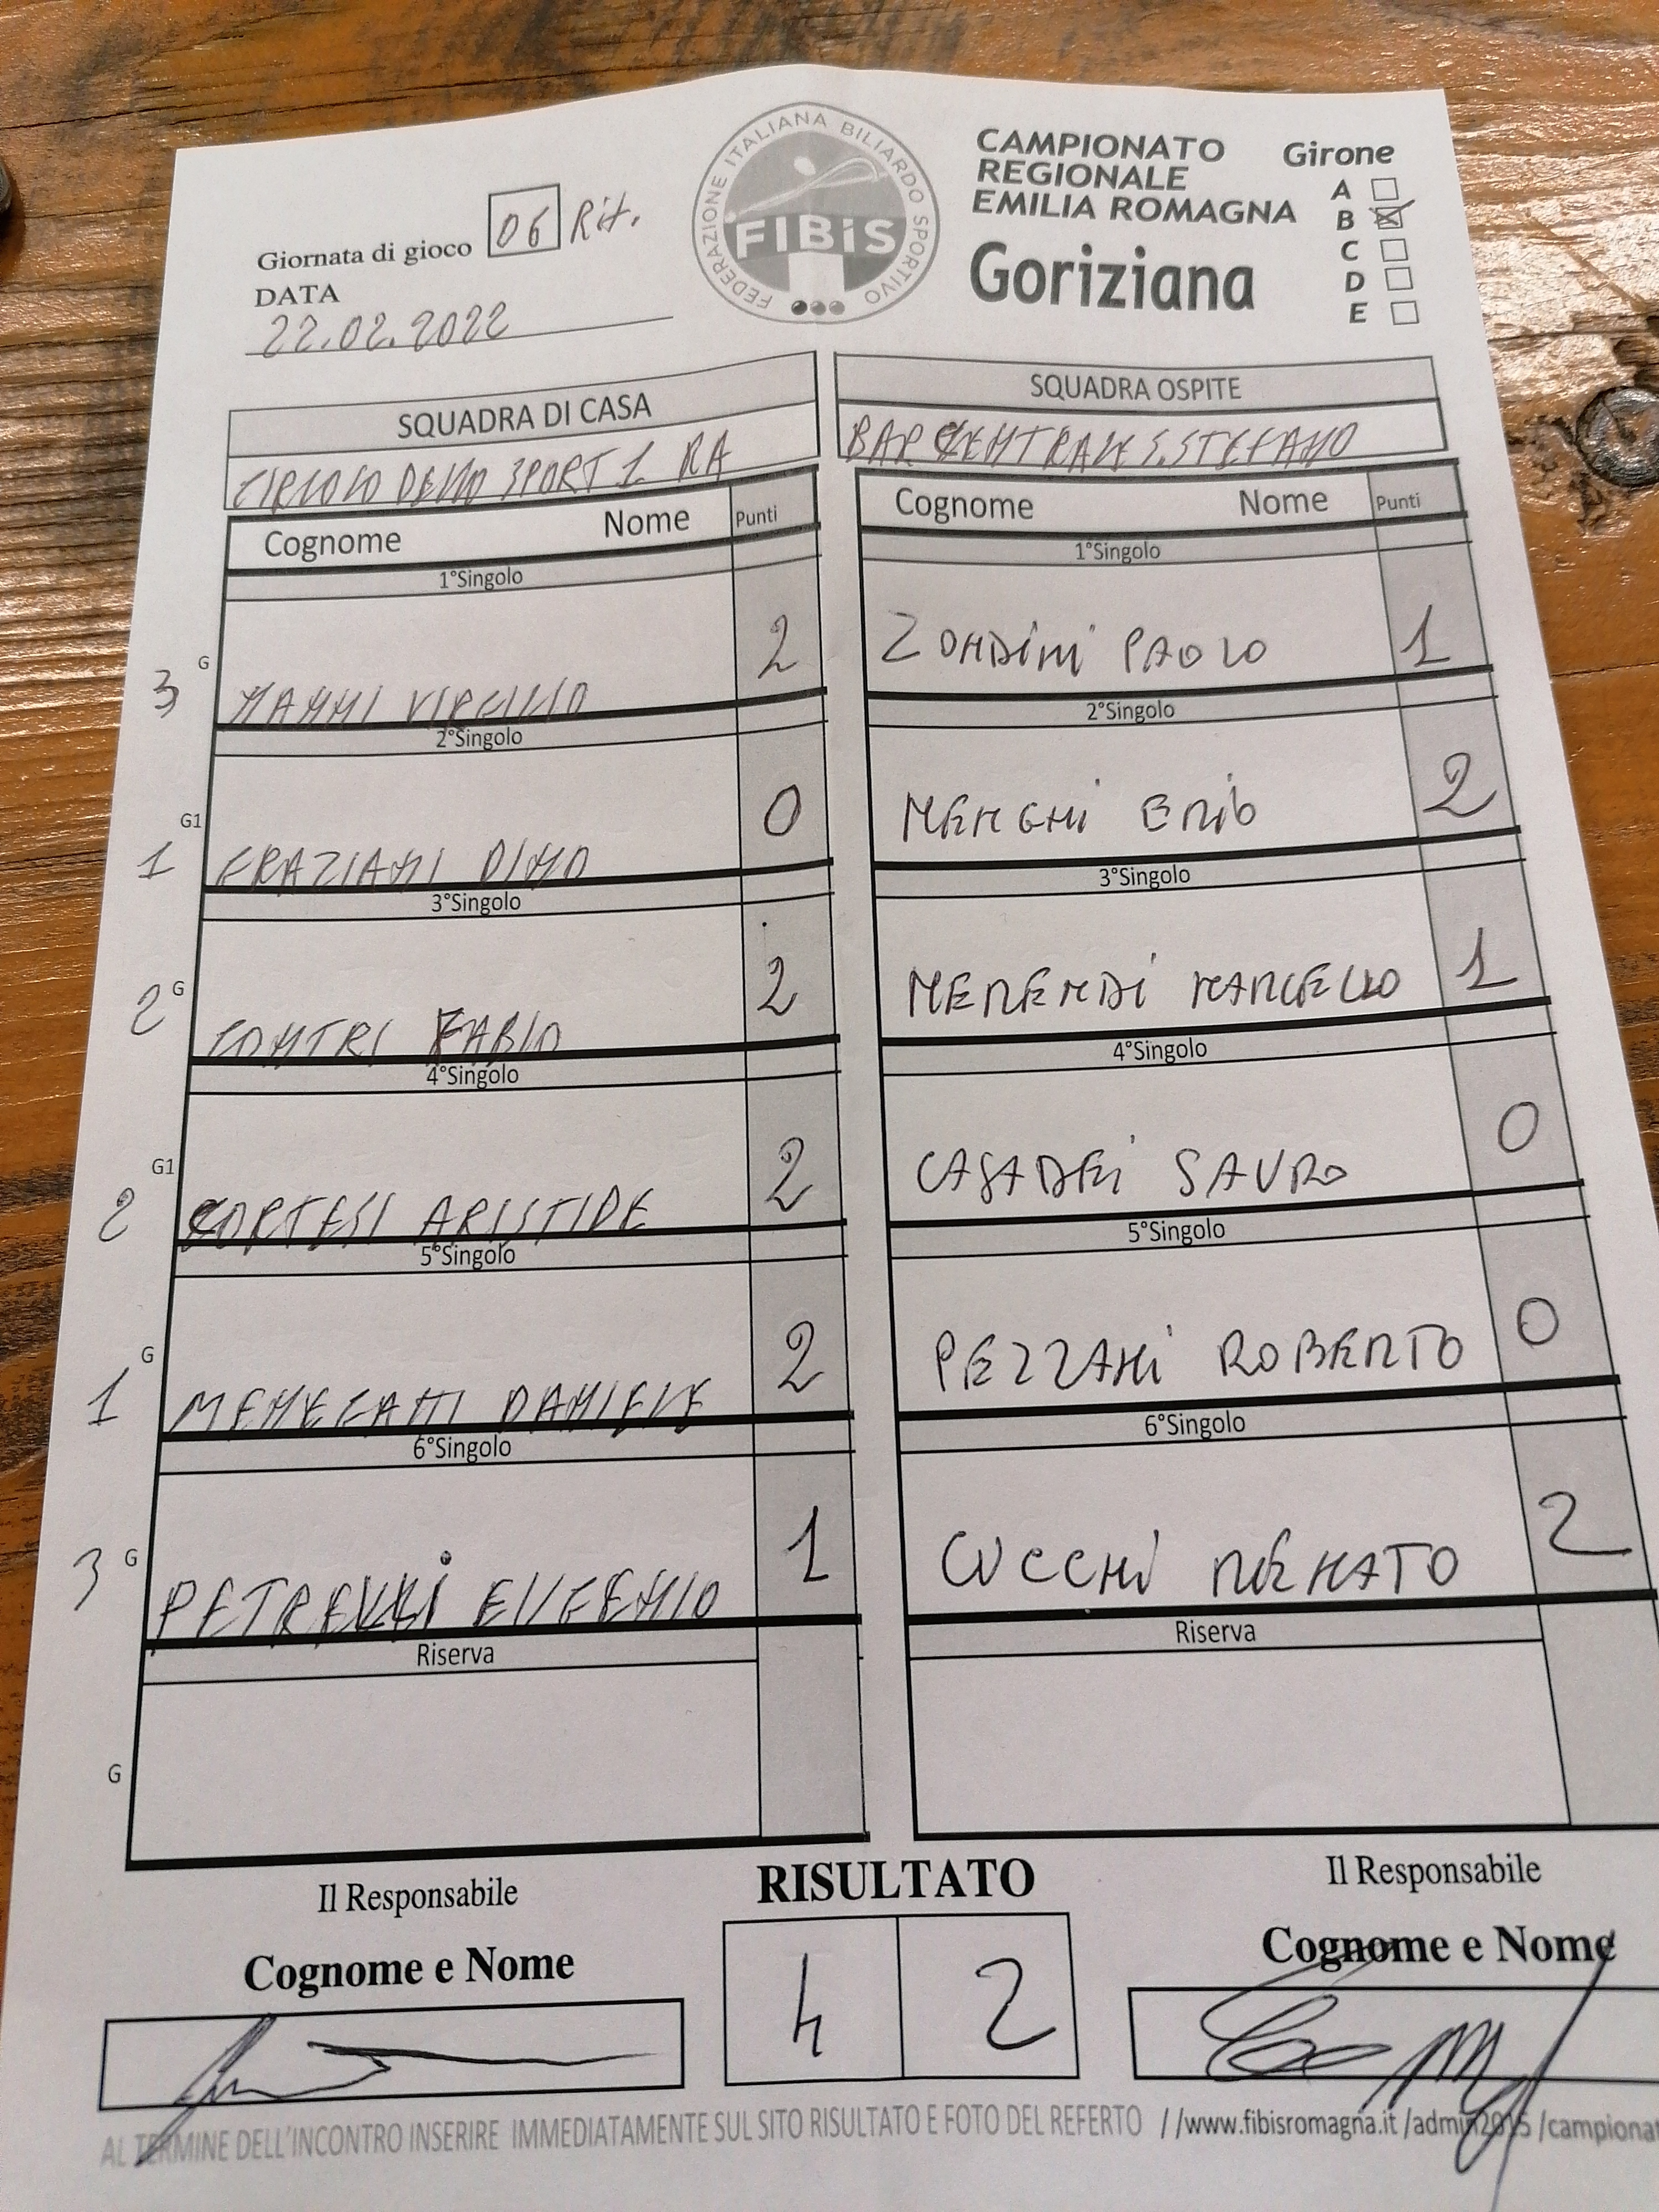 FEDERAZIONE ITALIANA BILIARDO SPORTIVO
FIBiS
CAMPIONATO
REGIONALE
EMILIA ROMAGNA
Goriziana
Girone
A
B
C
D
E
Giornata di gioco 06 Rit.
DATA
22.02.2022
SQUADRA DI CASA
CIRCOLO DELLO SPORT 1 RA
SQUADRA OSPITE
BAR CENTRALE S.STEFANO
Cognome Nome Punti
Cognome Nome Punti
1°Singolo
1°Singolo
3 G NANNI VIRGILIO 2
ZONDINI PAOLO 1
2°Singolo
2°Singolo
G1 1 GRAZIANI DINO 0
MENGHI 2
3°Singolo
3°Singolo
2 G CONTRI FABIO 2
MERENDI MARCELLO 1
4°Singolo
4°Singolo
G1 2 CORTESI ARISTIDE 2
CASADEI SAURO 0
5°Singolo
5°Singolo
G 1 MENEGATTI DANIELE 2
PEZZANI ROBERTO 0
6°Singolo
6°Singolo
3 G PETRELLI EUGENIO 1
CUCCHI RENATO 2
Riserva
Riserva
G
Il Responsabile
RISULTATO
Il Responsabile
Cognome e Nome
4 2
Cognome e Nome
AL TERMINE DELL'INCONTRO INSERIRE IMMEDIATAMENTE SUL SITO RISULTATO E FOTO DEL REFERTO //www.fibisromagna.it /admin2015 /campionat